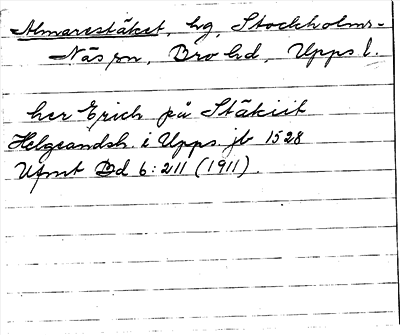 Almarestäket, hg, Stockholms-
Näs sn, Bro hd, Upps l.
her Erich på Stäkiit
Helgeandsh. i Upps. jb 1528
Ufmt Bd 6: 211 (1911).